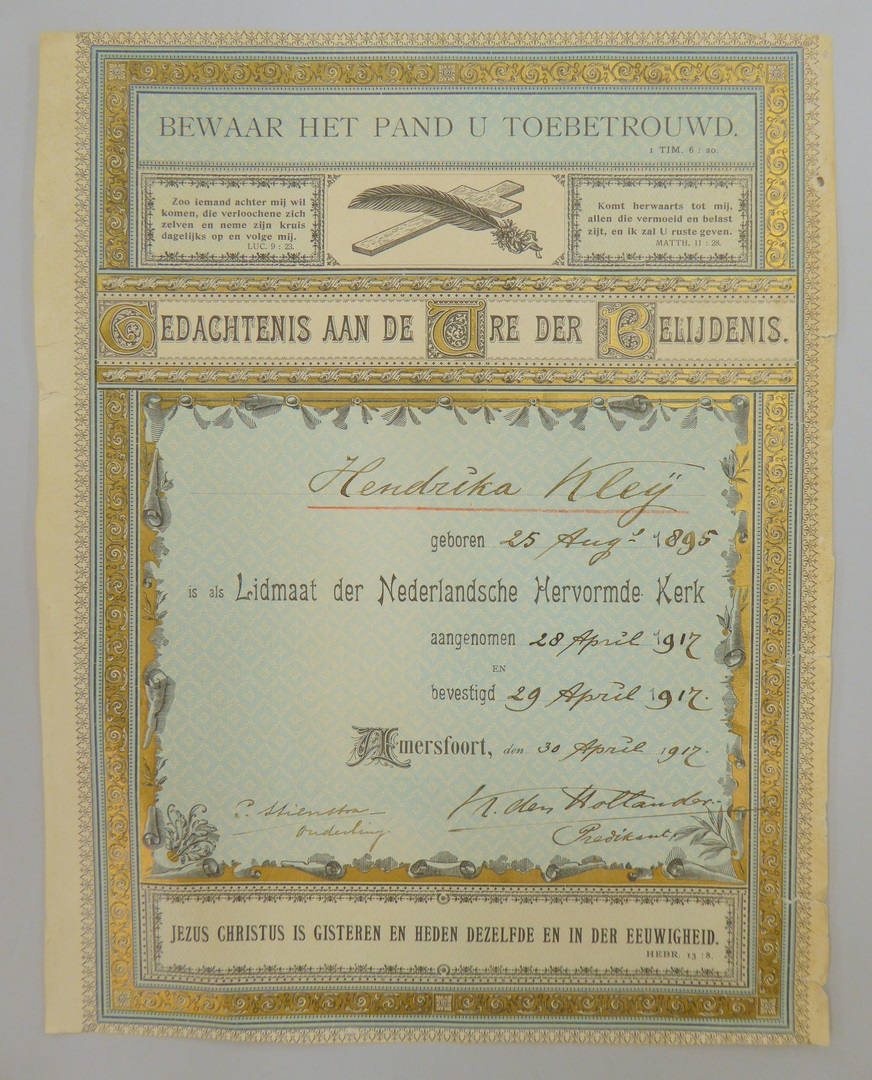 BEWAAR HET PAND U TOEBETROUWD.
1 TIM. 6 : 20.
Zoo iemand achter mij wil
komen, die verloochene zich
zelven en neme zijn kruis
dagelijks op en volge mij.
LUC. 9 : 23.
Komt herwaarts tot mij,
allen die vermoeid en belast
zijt, en ik zal U ruste geven.
MATTH. 11 : 28.
GEDACHTENIS AAN DE URE DER BELIJDENIS.
Hendrika Kleij
geboren 25 Augs. 1895
is als Lidmaat der Nederlandsche Hervormde Kerk
aangenomen 28 April 1917
EN
bevestigd 29 April 1917.
Amersfoort, den 30 April 1917.
Stienstra
Ouderling.
den Hollander.
Predikant
JEZUS CHRISTUS IS GISTEREN EN HEDEN DEZELFDE EN IN DER EEUWIGHEID.
HEBR. 13 : 8.